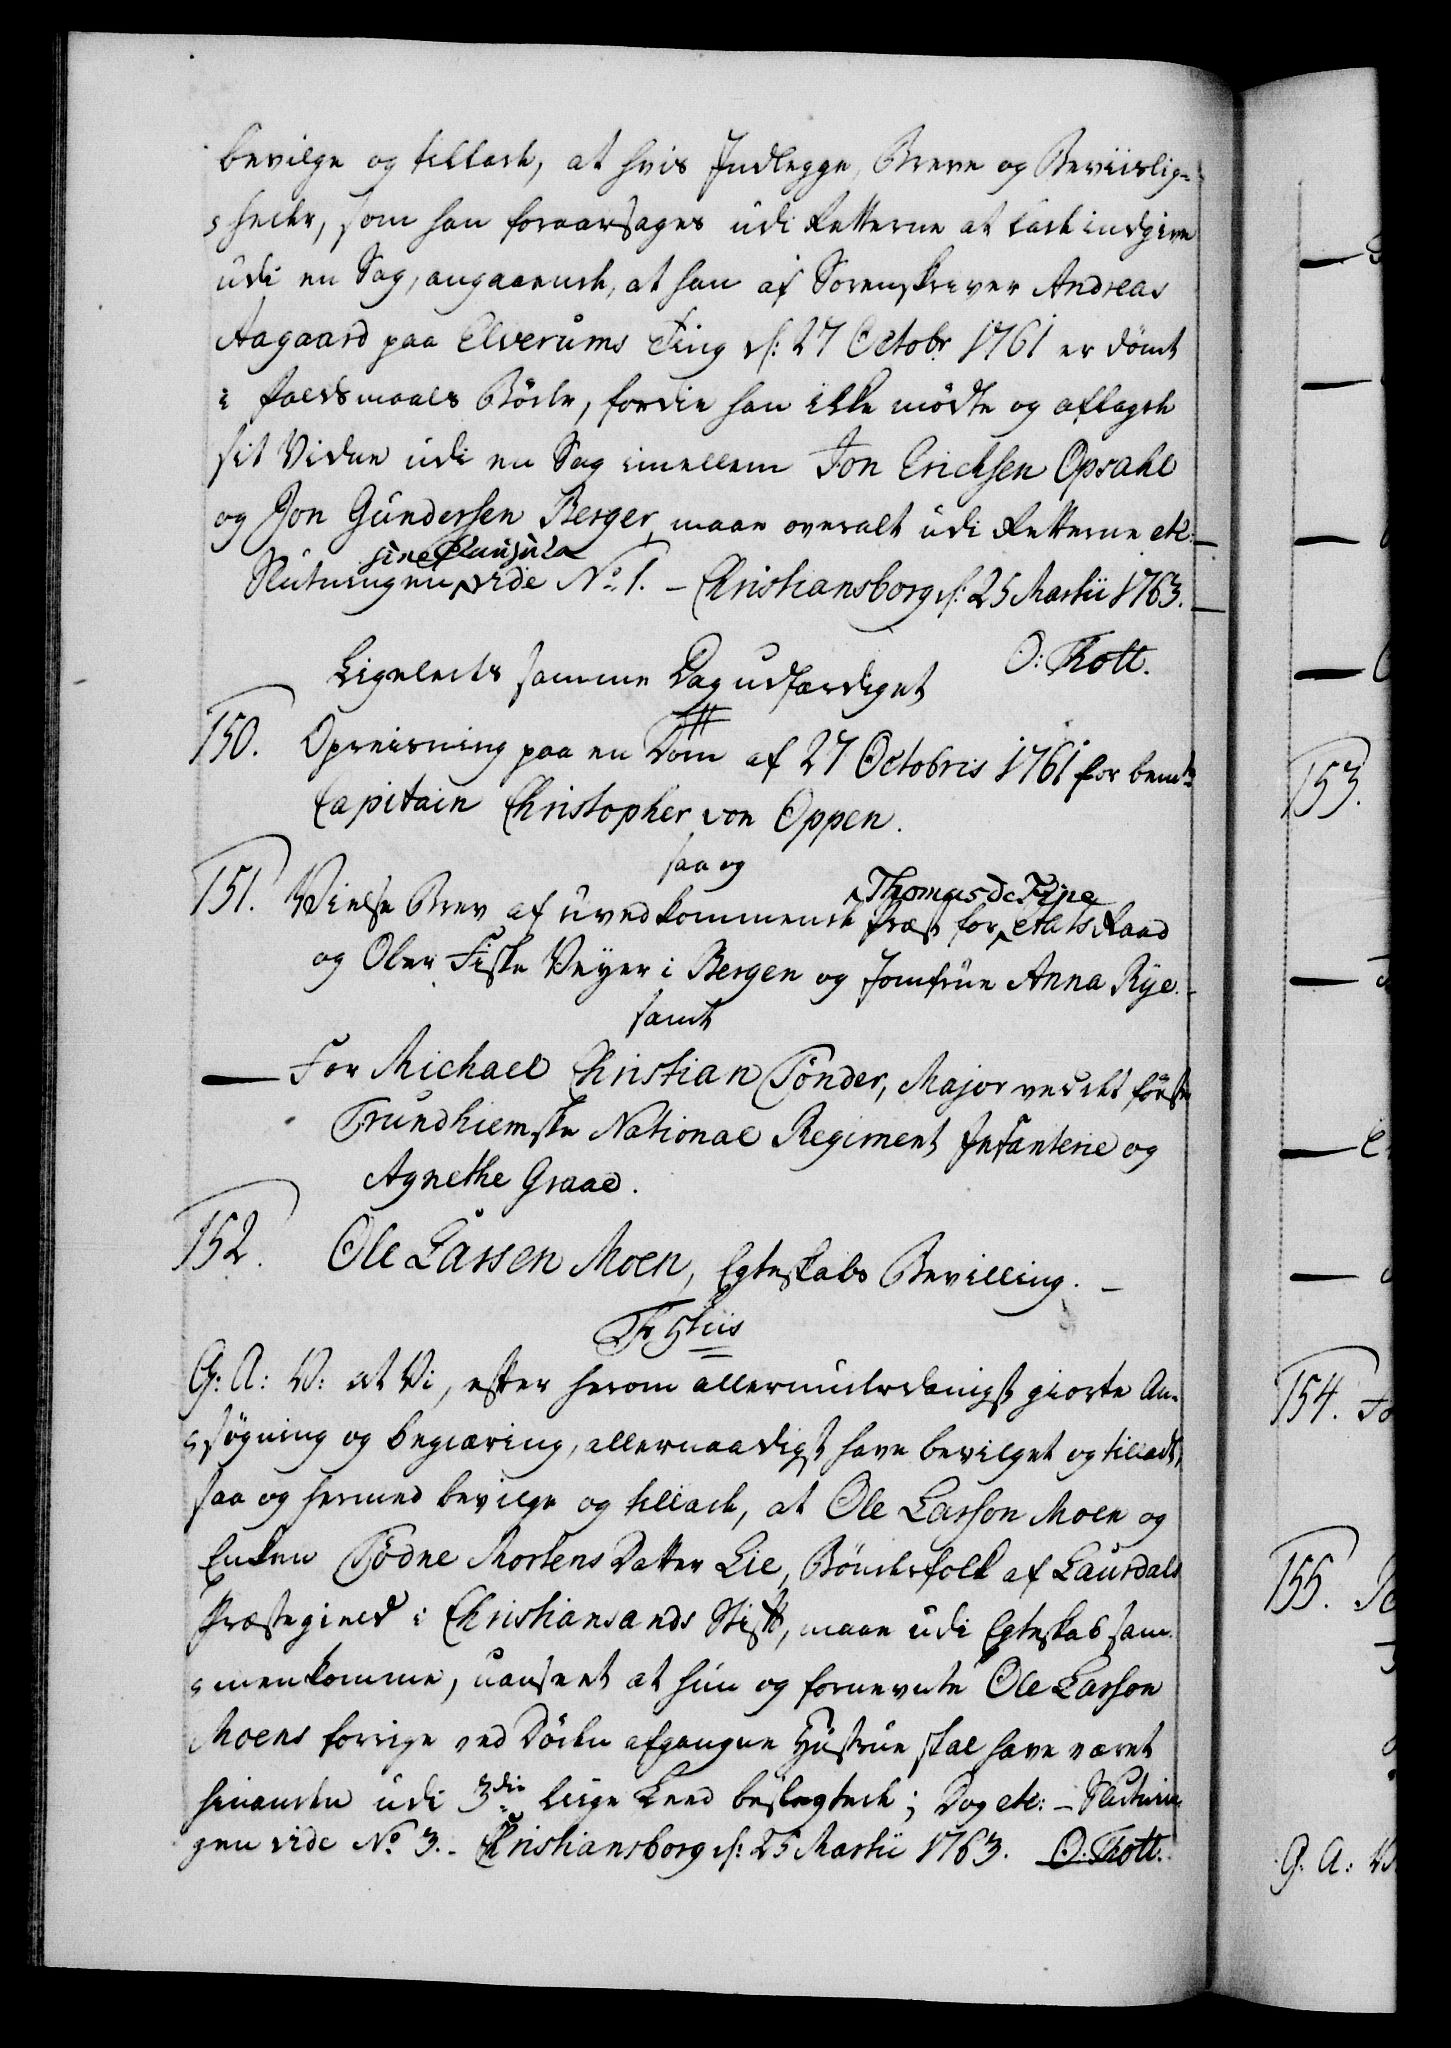 bevilge og tillade, at hvis Indlegge, Breve og Beviislig-
heder, som han foraarsages udi Retterne at lade indgive
udi en Sag, angaaende, at han af Sorenskriver Andreas
Aagaard paa Elverums Ting d: 27 Octobr 1761 er dömt
i Faldsmaals Böder, fordie han ikke mödte og aflagde
sit Vidne udi en Sag imellem Jon Erichsen Opsahl
og Jon Gundersen Berger, maae overalt udi Retterne etc:
sine Clausula
Slutningen vide No. 1. - Christiansborg d: 25 Martii 1763.
O: Thott.
Ligeledes samme Dag udfærdiget
150. Opreisning paa en Dom af 27 Octobris 1761 for bemte
Capitain Christopher von Oppen.
saa og
Thomas de
151. Vielse Brev af uvedkommende Præst for etats Raad
og Ober Fiske Veyer i Bergen og Jomfrue Anna Rye.
samt
For Michael Christian Tönder, Major ved det förste
Trundhiemske National Regiment Infanterie og
Agnethe Graae.
152. Ole Larssen Moen, Egteskabs Bevilling.
Fr 5tus
G: A: V: at Vi, efter herom allerunderdanigst giorte An-
søgning og begiæring, allernaadigst have bevilget og tilladt,
saa og hermed bevilge og tillade, at Ole Larsson Moen og
Enken Tödne Mortens Datter Lie, Bönderfolk af Laurdals
Præstegield i Christiansands Stift, maae udi Egteskab sam-
menkomme, uanseet at hun og fornevnte Ole Larsson
Moens forrige ved Döden afgangne Hustrue skal have været
hinanden udi 3die liige Leed beslegtede; Dog etc: - Slutnin-
gen vide No. 3. - Christiansborg d: 25 Martii 1763. O: Thott.
153.
154.
155.
G: A: V